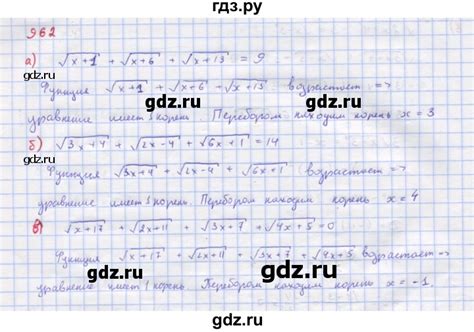 гдз.ру
962
а) √x+1 + √x+6 + √x+13 = 9
Функция √x+1 + √x+6 + √x+13 возрастает =>
уравнение имеет 1 корень. Перебором находим корень x = 3
б) √3x+4 + √2x-4 + √6x+1 = 14
Функция √3x+4 + √2x-4 + √6x+1 возрастает =>
уравнение имеет 1 корень. Перебором находим корень x = 4
в) √x+17 + √2x+11 + √3x+7 + √4x+5 = 0
Функция √x+17 + √2x+11 + √3x+7 + √4x+5 возрастает =>
уравнение имеет 1 корень. Перебором находим корень x = -1.
гдз.ру
гдз.ру
гдз.ру
гдз.ру
гдз.ру
гдз.ру
гдз.ру